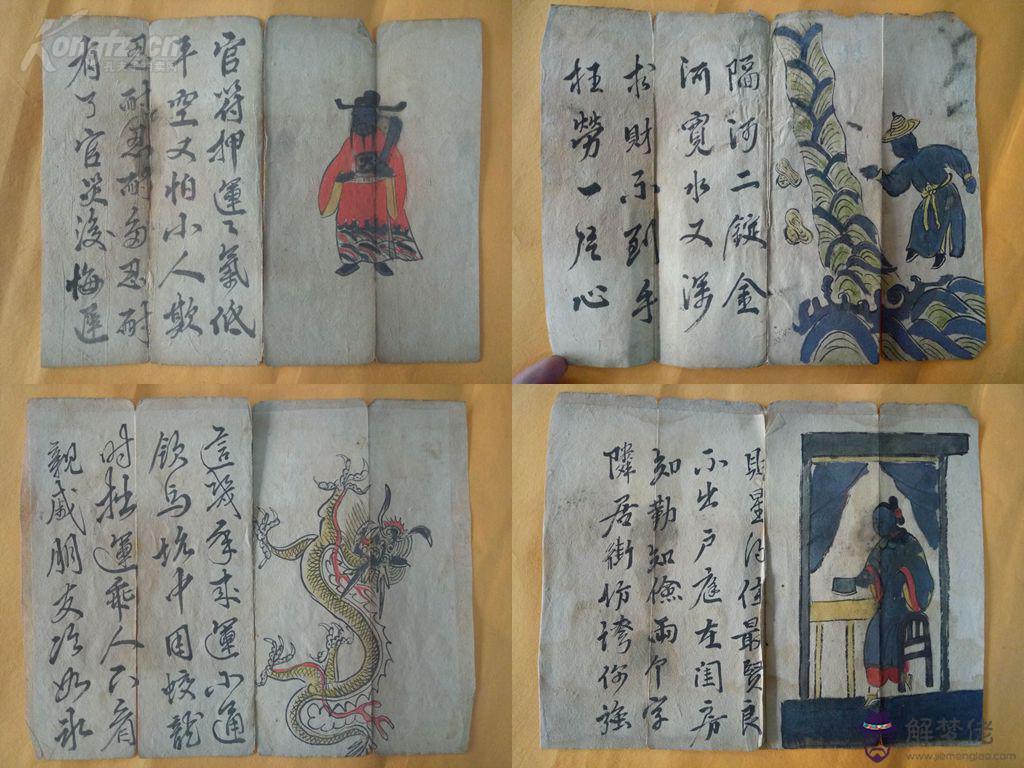 官符押運〻氣低
平空又怕小人欺
忍耐忍耐多忍耐
有了官災後悔遲
隔河二錠金
河寬水又深
求財不到手
枉勞一片心
這幾年來運不通
飲馬坑中困蛟龍
时拙運乖人不看
親戚朋友冷如冰
財星得位最賢良
不出戶庭在閨房
知勤知儉兩个字
隣居街坊誇你強
Kongfz.cn
解梦佬
www.jiemenglao.com